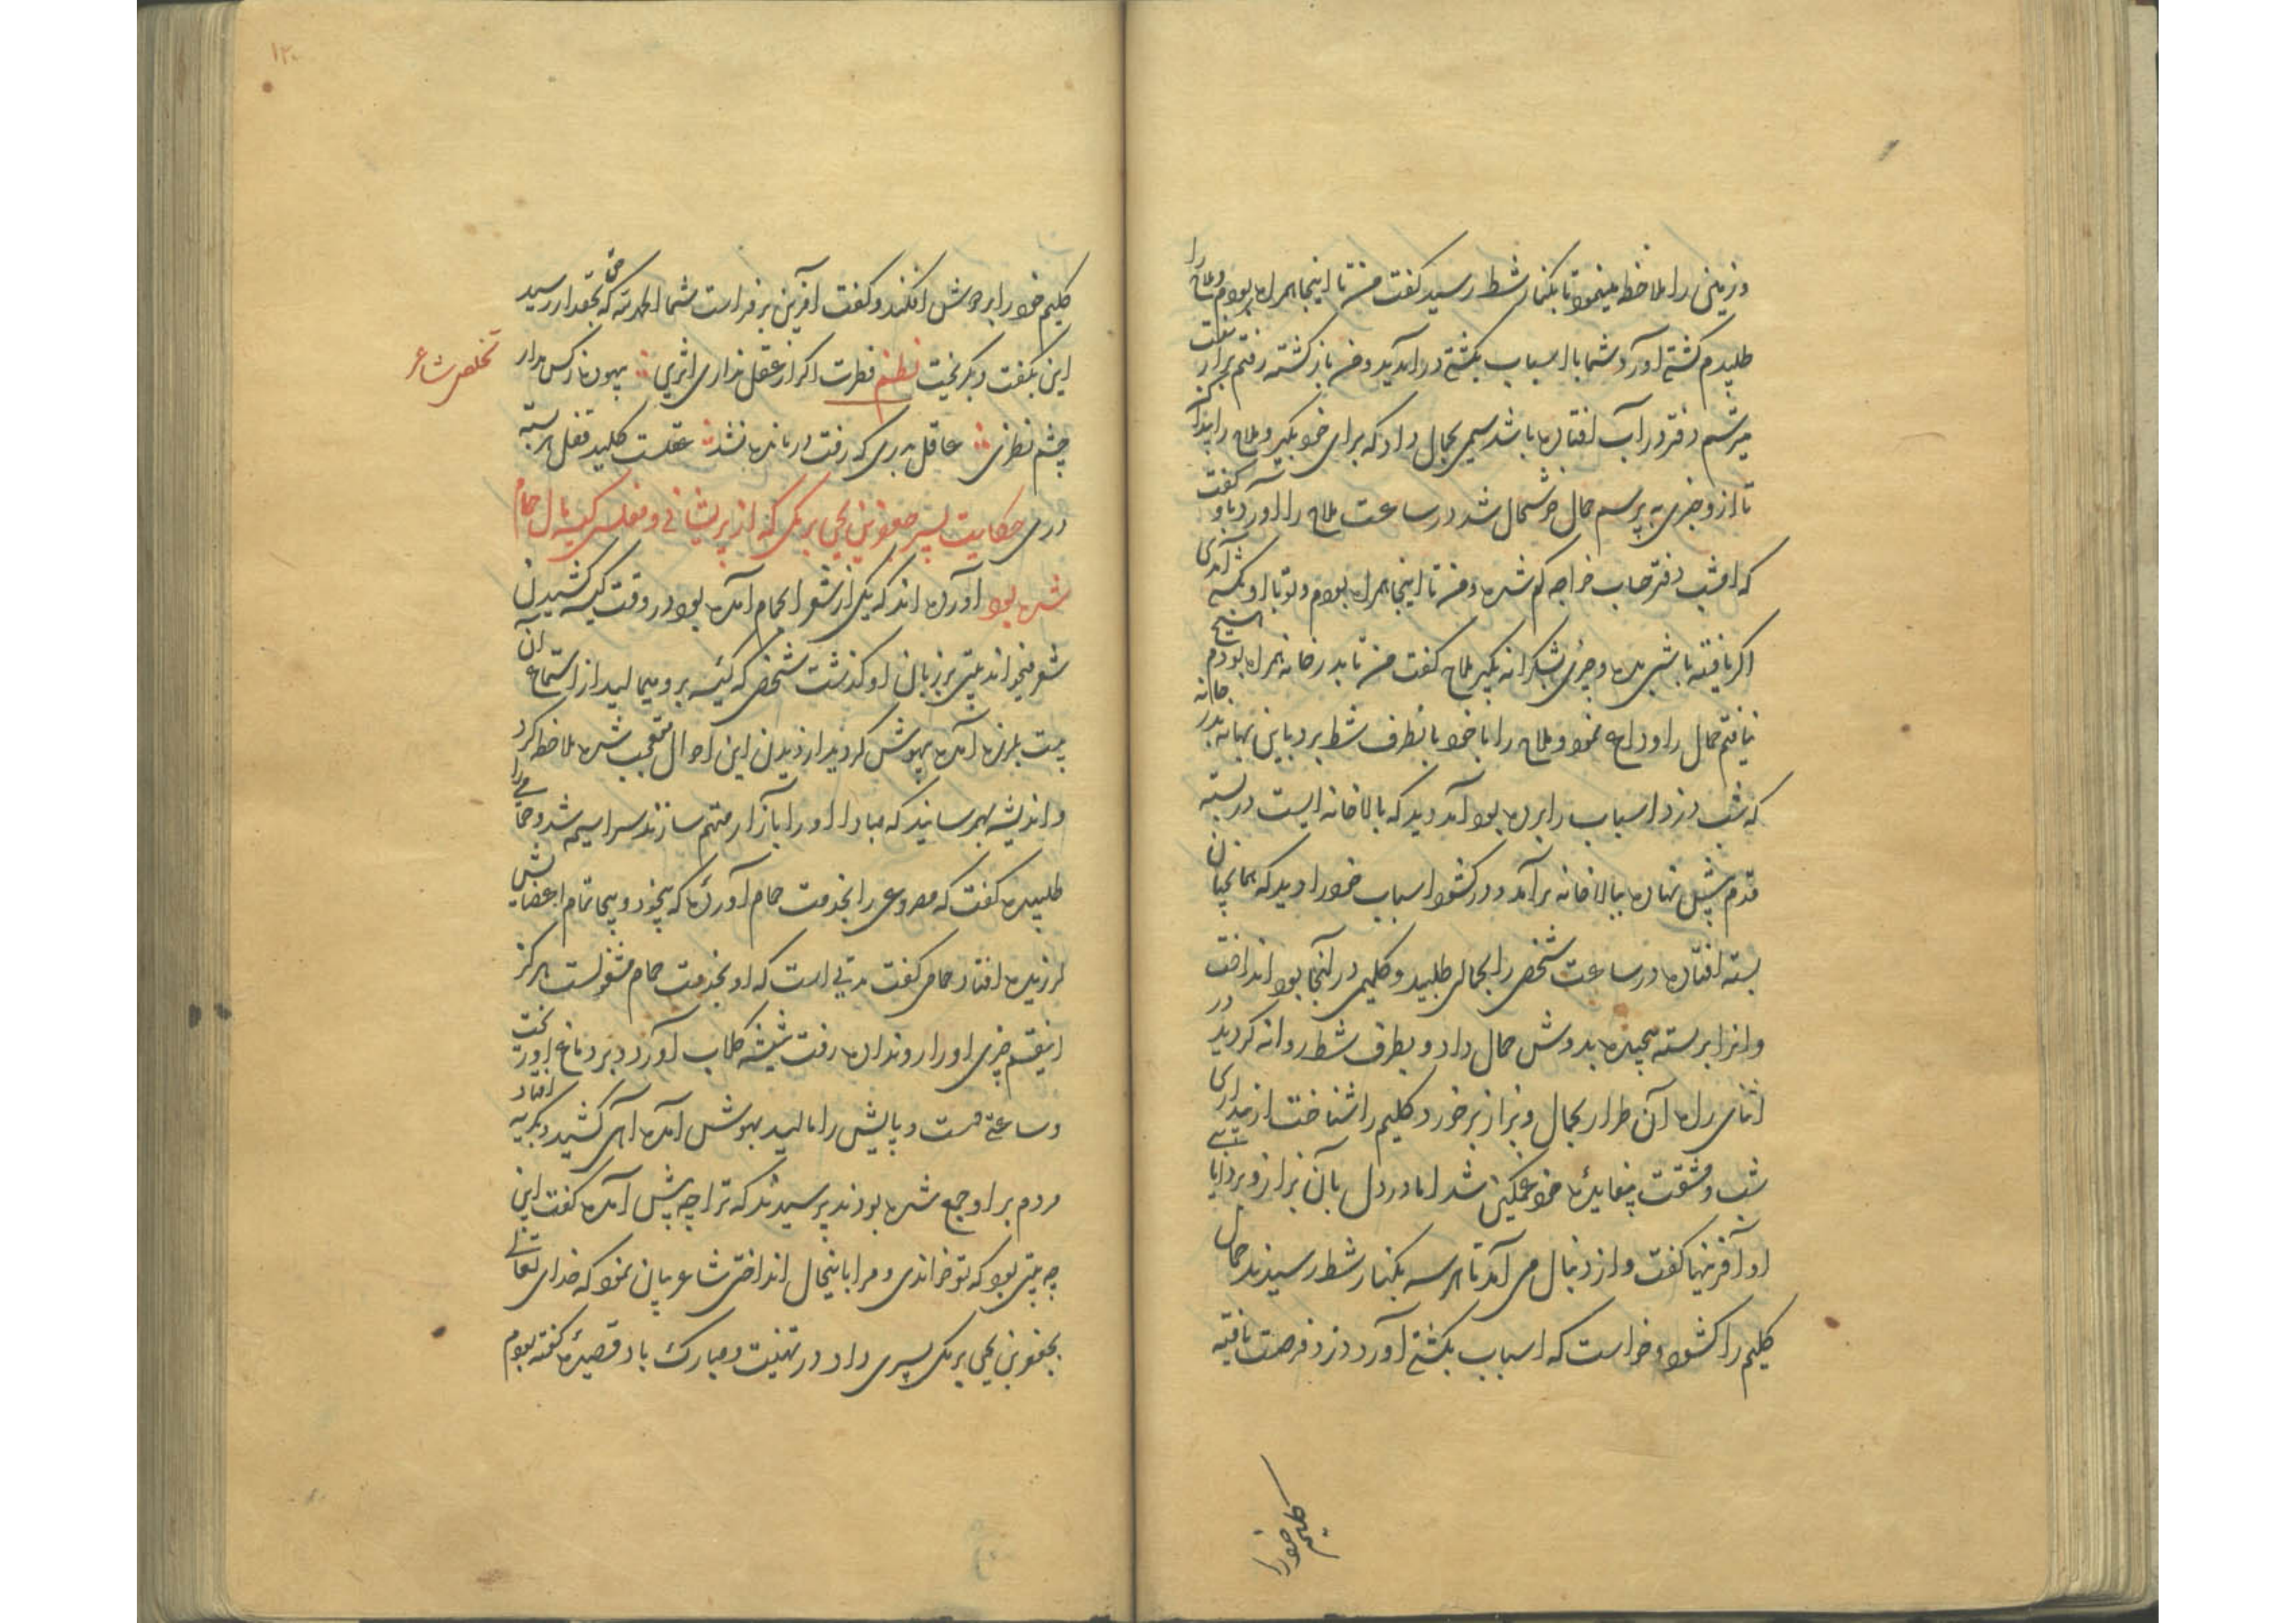 و زمین را ملاحظه مینمود تا بکنار شط رسید گفت من تا اینجا همراه بودم و ملاح را
طلبیدم کشتی آورد شما با اسباب بکشتی در آمدید و من باز گشته رفتم بزاز گفت
میترسم دفتر در آب افتاده باشد سیمی بحمال داد که برای خود بگیر و ملاح را پیدا کن
تا ازو خبری به پرسم حمال خوشحال شد در ساعت ملاح را آورد باو گفت
که امشب دفتر حساب خواجه گم شده و من تا اینجا همراه بودم و تو با او بکشتی آمدی
اگر یافته باشی بده و چیزی بشکرانه بگیر ملاح گفت من تا بدر خانه همراه بودم هیچ
نیافتم حمال را وداع نمود و ملاح را با خود بانطرف شط برد باین بهانه بدر خانه
که شب دزد اسباب را برده بود آمد دید که بالاخانه ایست در بسته
قدم پیش نهاده ببالاخانه برآمد و در کشود اسباب خود را دید که همانچنان
بسته افتاده در ساعت شخص را بحمالی طلبید و کلیمی در آنجا بود انداخت
و انرا بر بسته پیچیده بدوش حمال داد و بطرف شط روانه گردید در
اثنای راه آن طرار بحمال و بزاز برخورد و کلیم را شناخت از بیداری
شب و مشقت بیفایده خود غمگین شد اما در دل بآن بزاز و بر دانایی
او آفرینها گفت و از دنبال می آمد تا هر سه بکنار شط رسیدند حمال
کلیم را کشود و خواست که اسباب بکشتی آورد دزد فرصت یافته
کلیم خود را
۱۲۰
کلیم خود را بر دوش افکند و گفت آفرین بر فراست شما الحمد لله که حق بحقدار رسید
این بگفت و بگریخت نظم فطرت اگر از عقل نداری اثری ؞ بیهوده ز کس مدار
تخلص شاعر
چشم نظری ؞ عاقل بدری که رفت درمانده نشد ؞ عقلست کلید قفل هر بسته
دری حکایت پسر جعفر بن یحیی برمکی که از پریشانی و مفلسی کیسه مال حمام
شده بود آورده اند که یکی از شعرا بحمام آمده بود در وقت کیسه کشیدن
شعر میخواند بیتی بر زبان او گذشت شخص که کیسه برو میمالید از استماع آن
بیت بلرزه آمده بیهوش گردید از دیدن این احوال متعجب شده ملاحظه کرد
و اندیشه بهمرسانید که مبادا او را بآزار متهم سازند سراسیمه شد و حمامی را
طلبیده گفت که مصروعی را بخدمت حمام آورده که بیخود و بیجا تمام اعضایش
لرزیده افتاد حمامی گفت مدتی است که او بخدمت حمام مشغولست هرگز
اینقسم چیزی او را رو نداده رفت شیشه گلاب آورد و بر دماغ او ریخت
و ساعتی دست و پایش را مالید بهوش آمده آهی کشید و بگریه افتاد
مردم بر او جمع شده بودند پرسیدند که ترا چه پیش آمده گفت این
چه بیتی بود که تو خواندی و مرا باینحال انداختی شاعر بیان نمود که خدای تعالی
بجعفر بن یحیی برمکی پسری داد در تهنیت و مبارک باد قصیده گفته بودم